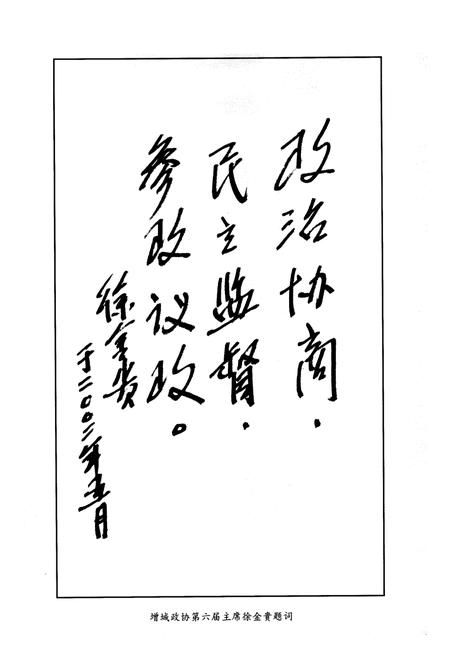 政治协商.
民主监督.
参政议政。
徐金贵
于二00二年五月
增城政协第六届主席徐金贵题词